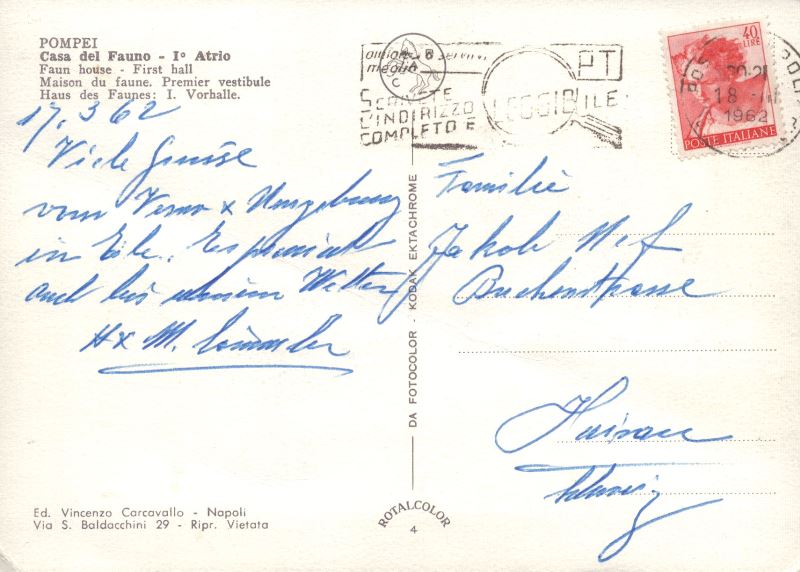 POMPEI
Casa del Fauno - I° Atrio
Faun house - First hall
Maison du faune. Premier vestibule
Haus des Faunes: I. Vorhalle.
17. 3 62
Viele Grüsse
vom & Umgebung
in Eile. Es
auch bei Wetter
H & M.
SCRIVETE
L'INDIRIZZO
COMPLETO E
LEGGIBILE
PT
40
LIRE
POSTE ITALIANE
20-21
18
1962
Familie
Jakob
Buchenstrasse
Schweiz
DA FOTOCOLOR - KODAK EKTACHROME
ROTALCOLOR
4
Ed. Vincenzo Carcavallo - Napoli
Via S. Baldacchini 29 - Ripr. Vietata